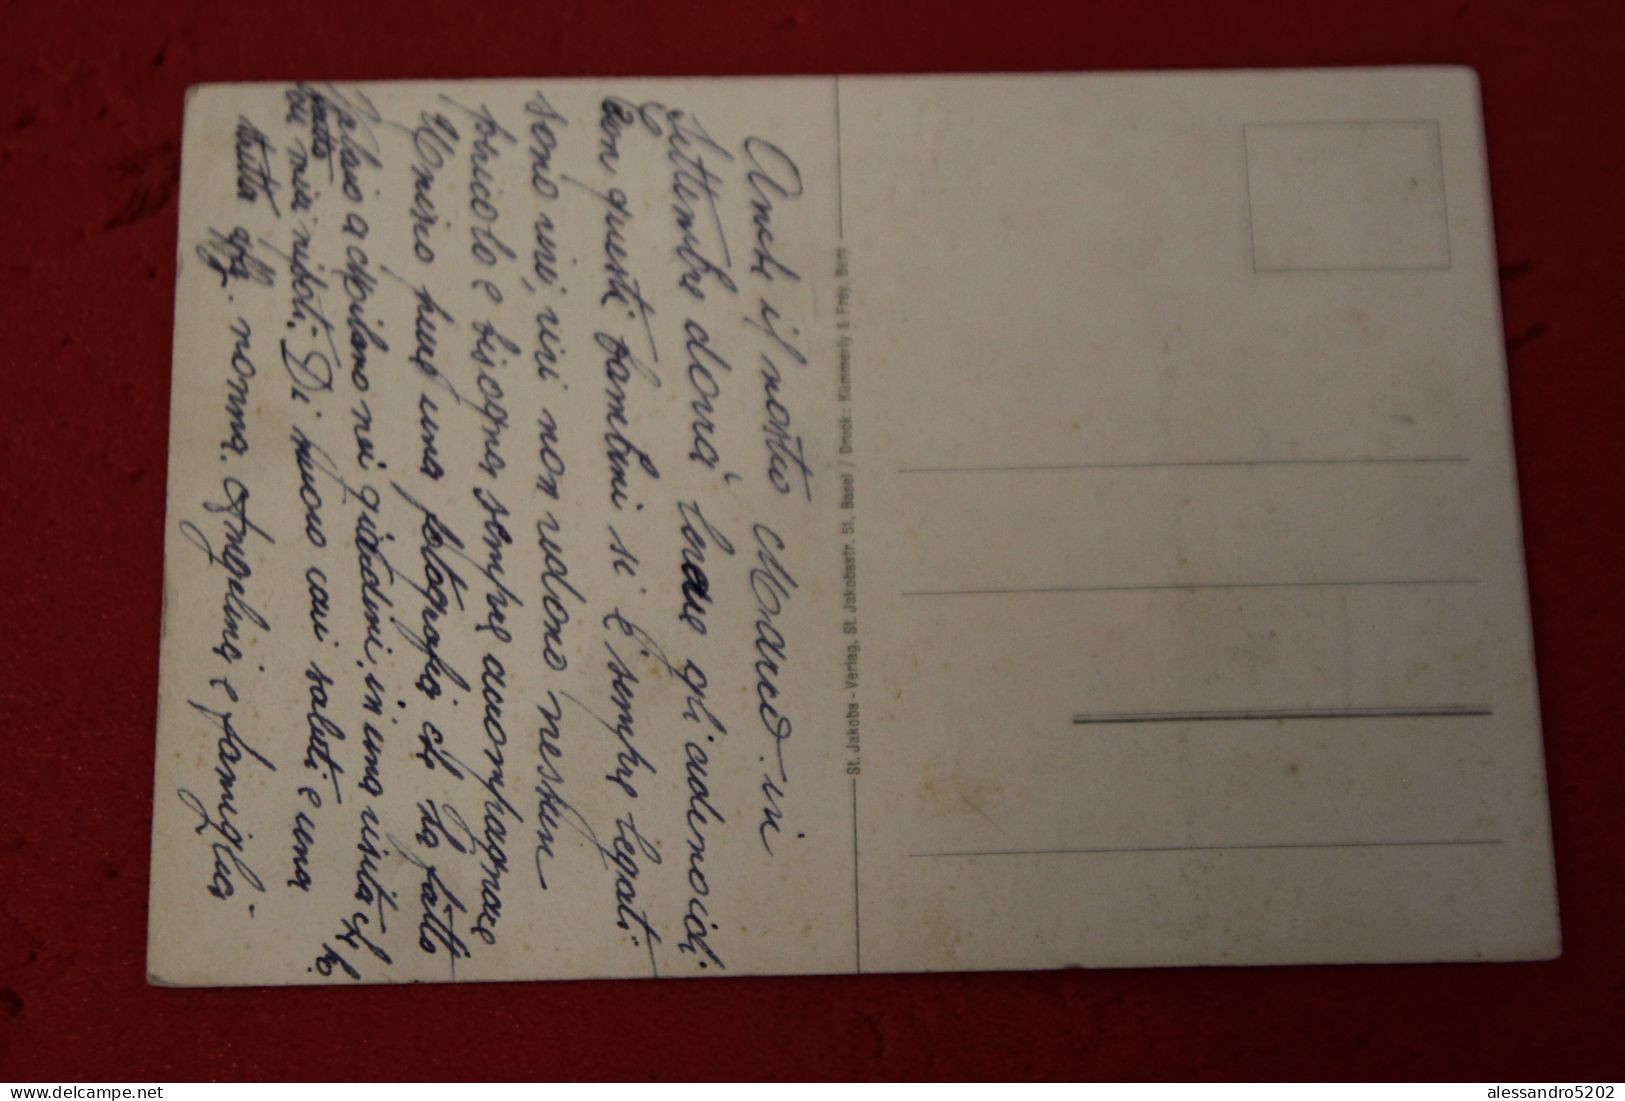 Anche il nostro Marco. in
Settembre dovrà levare gli adenoidi
Con questi bambini si è sempre legati.
sono vivi, vivi non vedono nessun
pericolo e bisogna sempre accompagnare
Unisco pure una fotografia che ha fatto
Palmo a Milano nei giardini, in una visita che ho
fatto
ai miei nipoti. Di nuovo cari saluti e una
stretta aff. nonna. Angelina e famiglia.
St. Jakobs - Verlag, St. Jakobsstr. 51, Basel / Druck: Kümmerly & Frey, Bern
delcampe.net
alessandro5202